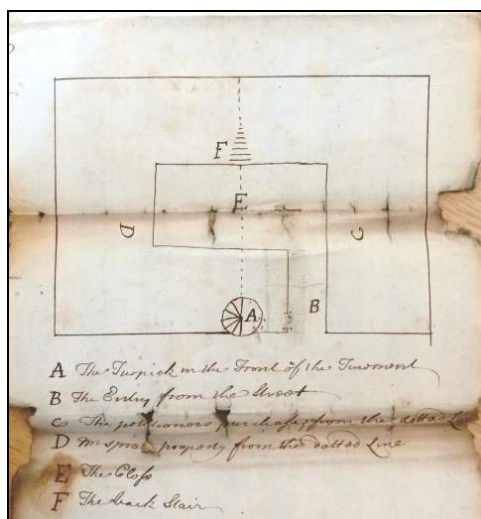 F
E
D
C
A
B
A The Turpick in the Front of the Tenement
B The Entry from the Street
C The petitioners purchase from the dotted Line
D Mr Spires property from the dotted Line
E The Closs
F The back Stair